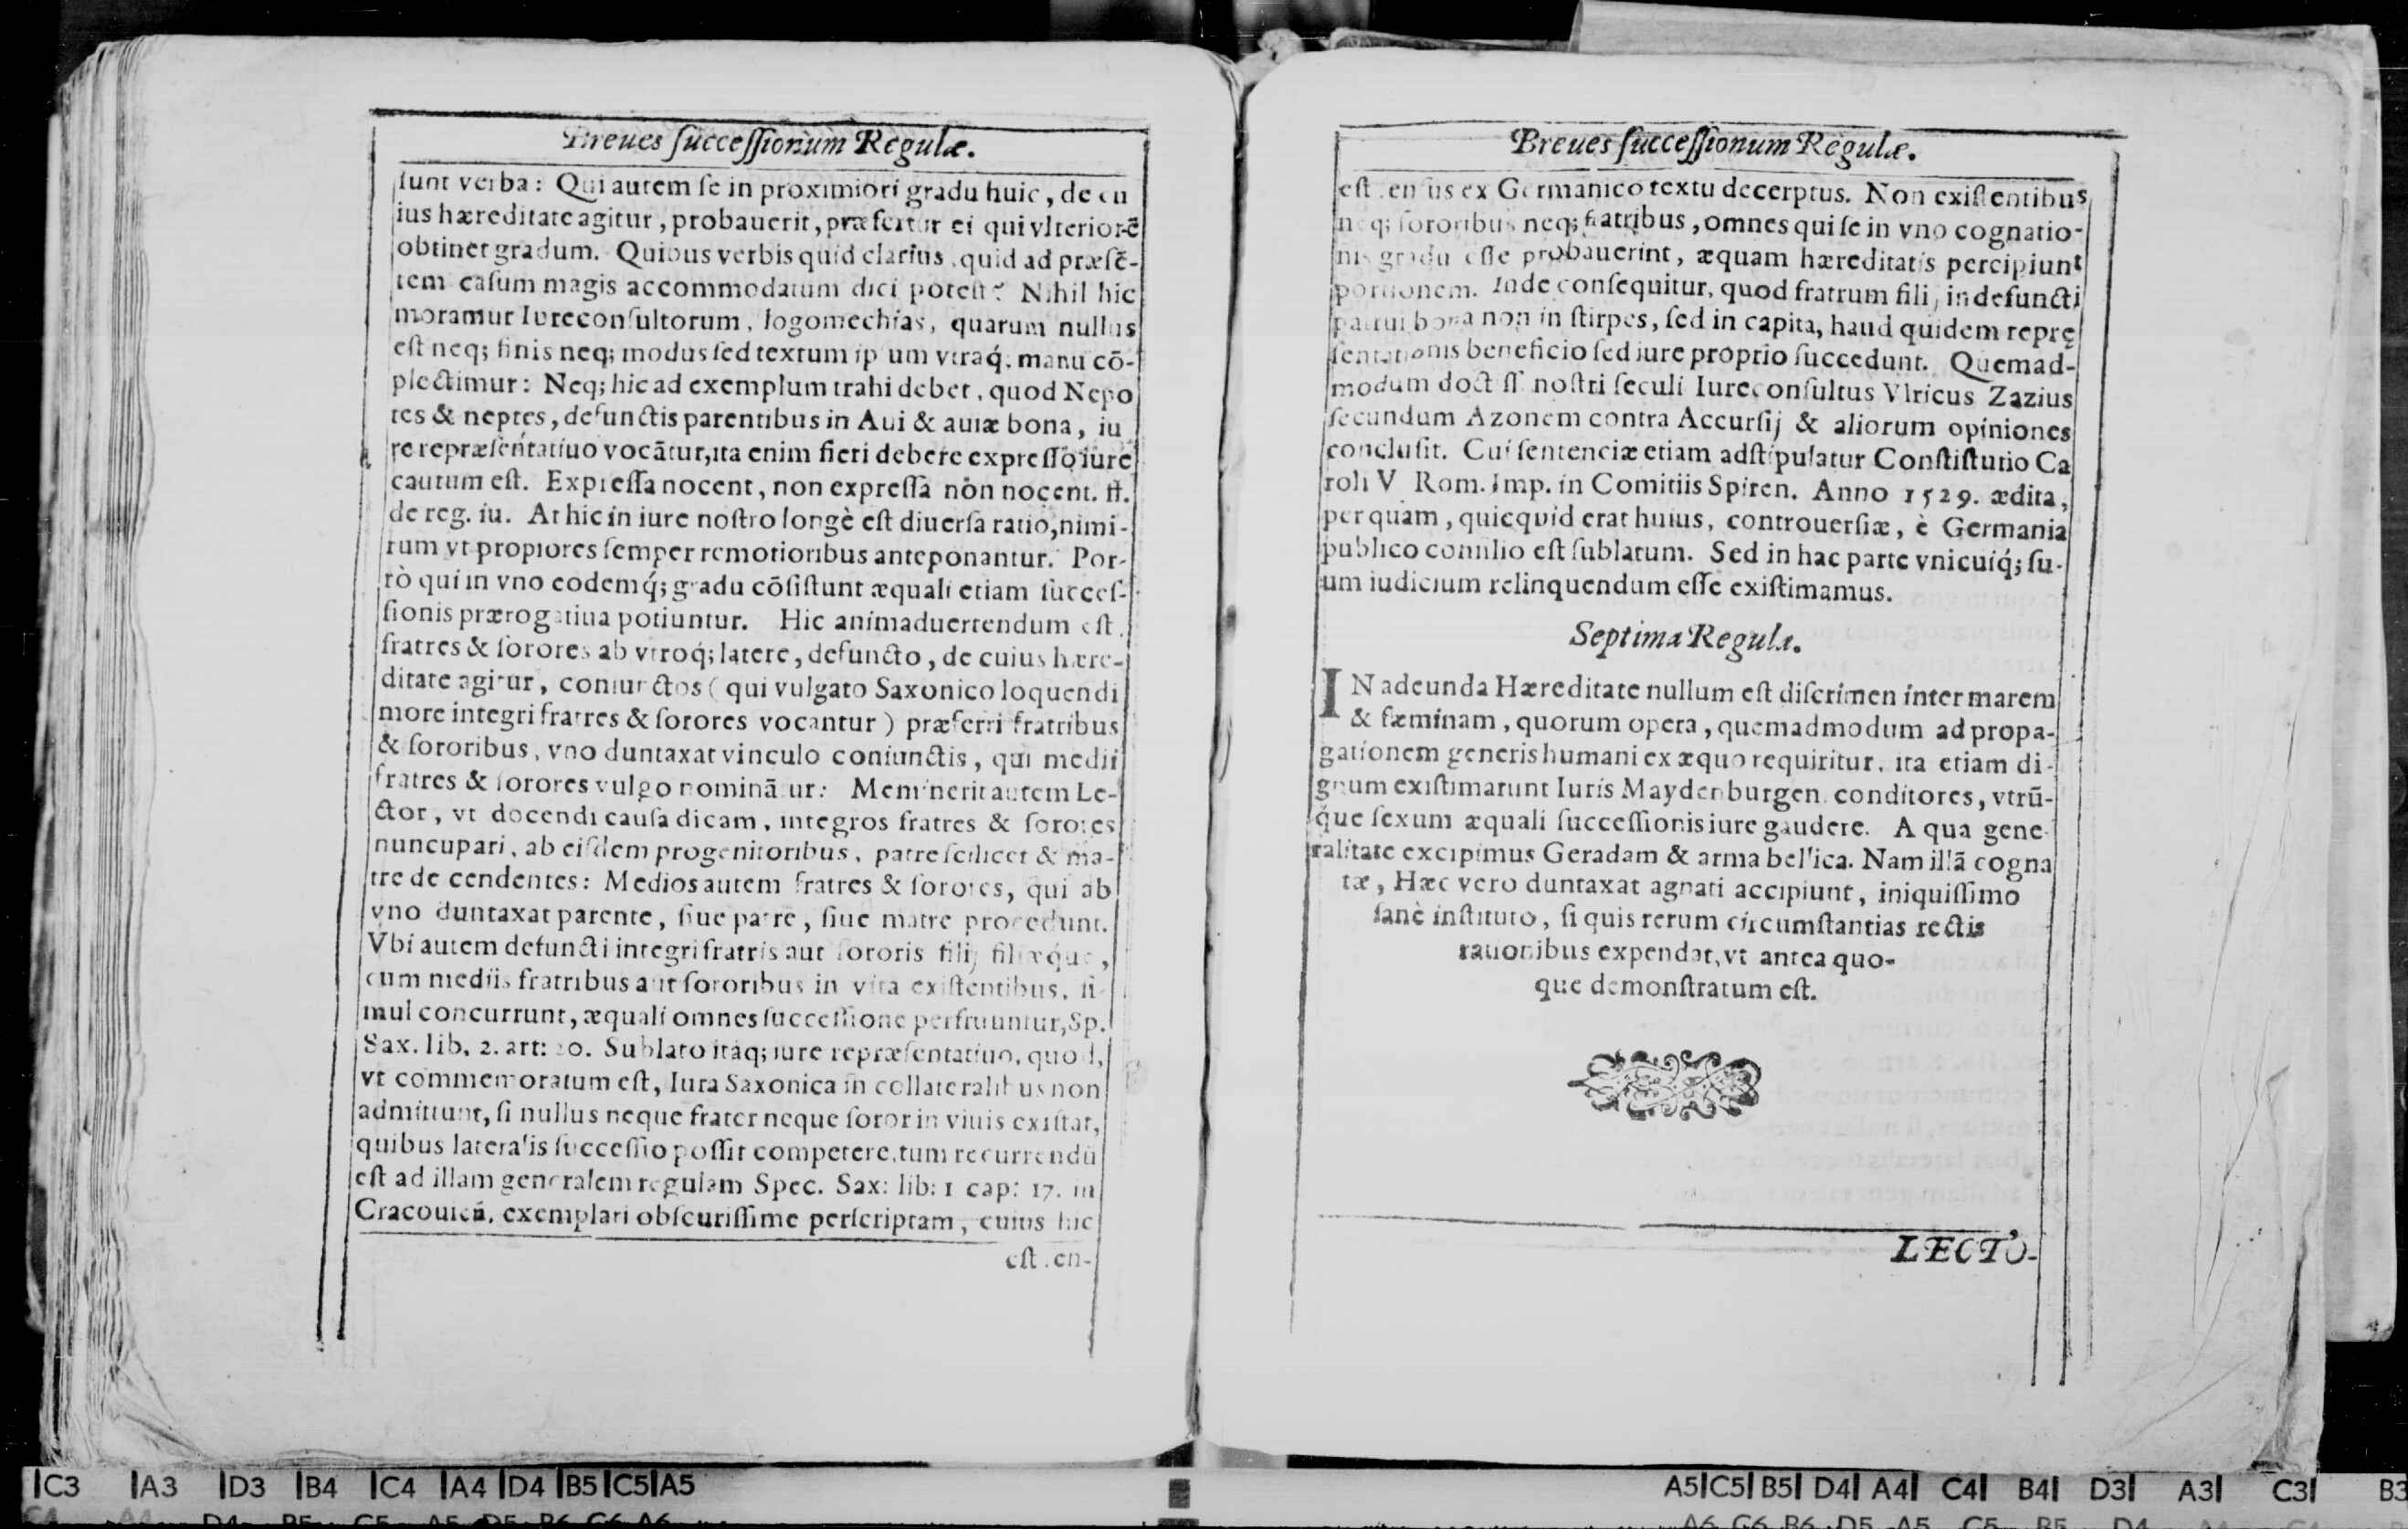 Breues ſucceſſionum Regulæ.
ſunt verba: Qui autem ſe in proximiori gradu huic, de cu
ius hæreditate agitur, probauerit, præfertur ei qui vlteriorē
obtinet gradum. Quibus verbis quid clarius, quid ad præſē-
tem caſum magis accommodatum dici poteſt? Nihil hic
moramur Iureconſultorum, logomechias, quarum nullus
eſt neq; finis neq; modus ſed textum ipſum vtraq́; manu cō-
plectimur: Neq; hic ad exemplum trahi debet, quod Nepo
tes & neptes, defunctis parentibus in Aui & auiæ bona, iu
re repræſentatiuo vocātur, ita enim fieri debere expreſſo iure
cautum eſt. Expreſſa nocent, non expreſſa nòn nocent. ff.
de reg. iu. At hic in iure noſtro longè eſt diuerſa ratio, nimi-
rum vt propiores ſemper remotioribus anteponantur. Por-
rò qui in vno eodemq́; gradu cōſiſtunt æquali etiam ſucceſ-
ſionis prærogatiua potiuntur. Hic animaduertendum eſt,
fratres & ſorores ab vtroq́; latere, defuncto, de cuius hære-
ditate agitur, coniunctos (qui vulgato Saxonico loquendi
more integri fratres & ſorores vocantur) præferri fratribus
& ſororibus, vno duntaxat vinculo coniunctis, qui medii
fratres & ſorores vulgo nominātur: Meminerit autem Le-
ctor, vt docendi cauſa dicam, integros fratres & ſorores
nuncupari, ab eiſdem progenitoribus, patre ſcilicet & ma-
tre deſcendentes: Medios autem fratres & ſorores, qui ab
vno duntaxat parente, ſiue patre, ſiue matre procedunt.
Vbi autem defuncti integri fratris aut ſororis filij filiæq́ue,
cum mediis fratribus aut ſororibus in vita exiſtentibus, ſi-
mul concurrunt, æquali omnes ſucceſſione perfruuntur, Sp.
Sax. lib. 2. art: 20. Sublato itaq; iure repræſentatiuo, quod,
vt commemoratum eſt, Iura Saxonica in collateralibus non
admittunt, ſi nullus neque frater neque ſoror in viuis exiſtat,
quibus lateralis ſucceſſio poſſit competere, tum recurrendū
eſt ad illam generalem regulam Spec. Sax: lib: 1 cap: 17. in
Cracouien. exemplari obſcuriſſime perſcriptam, cuius hic
eſt ſen-
Breues ſucceſſionum Regulæ.
eſt ſenſus ex Germanico textu decerptus. Non exiſtentibus
neq; ſororibus neq; fratribus, omnes qui ſe in vno cognatio-
nis gradu eſſe probauerint, æquam hæreditatis percipiunt
portionem. Inde conſequitur, quod fratrum filij in defuncti
patrui bona non in ſtirpes, ſed in capita, haud quidem reprę
ſentationis beneficio ſed iure proprio ſuccedunt. Quemad-
modum doctſſ. noſtri ſeculi Iureconſultus Vlricus Zazius
ſecundum Azonem contra Accurſij & aliorum opiniones
concluſit. Cui ſentenciæ etiam adſtipulatur Conſtiſtutio Ca
roli V Rom. Imp. in Comitiis Spiren. Anno 1529. ædita,
per quam, quicquid erat huius, controuerſiæ, è Germania
publico conſilio eſt ſublatum. Sed in hac parte vnicuiq́; ſu-
um iudicium relinquendum eſſe exiſtimamus.
Septima Regula.
IN adeunda Hæreditate nullum eſt diſcrimen inter marem
& fæminam, quorum opera, quemadmodum ad propa-
gationem generis humani ex æquo requiritur, ita etiam di-
gnum exiſtimarunt Iuris Maydenburgen. conditores, vtrū-
q́ue ſexum æquali ſucceſſionis iure gaudere. A qua gene-
ralitate excipimus Geradam & arma bellica. Nam illā cogna
tæ, Hæc vero duntaxat agnati accipiunt, iniquiſſimo
ſanè inſtituto, ſi quis rerum circumſtantias rectis
rationibus expendat, vt antea quo-
que demonſtratum eſt.
LECTO-
C3 A3 D3 B4 C4 A4 D4 B5 C5 A5
A5 C5 B5 D4 A4 C4 B4 D3 A3 C3 B3